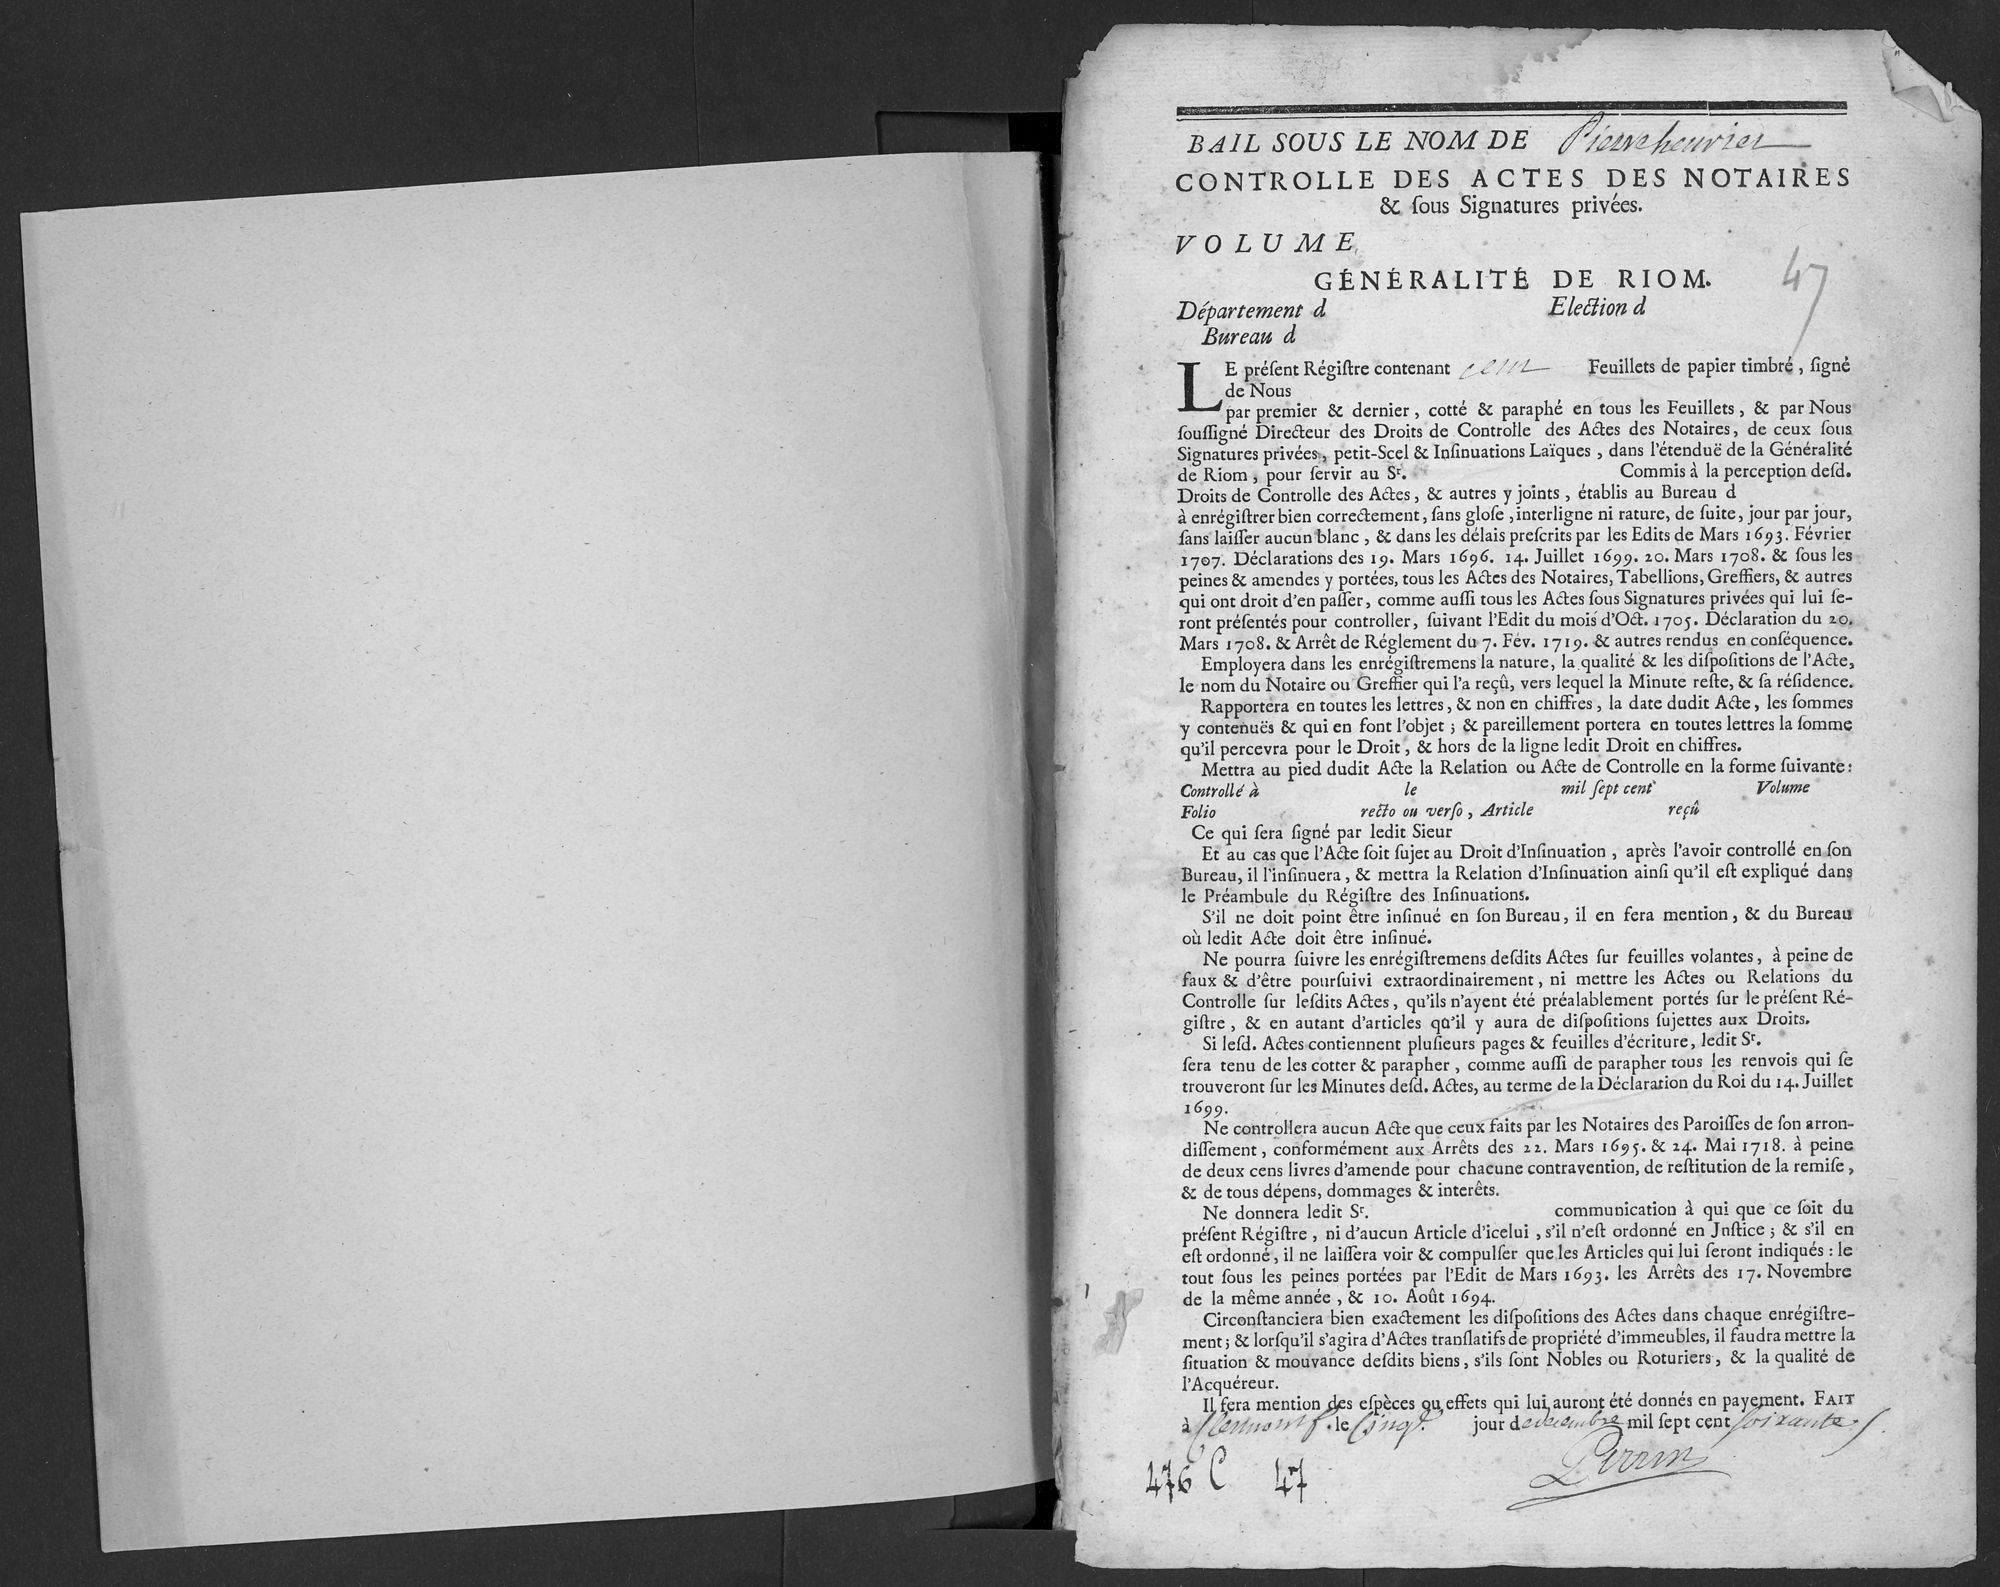 BAIL SOUS LE NOM DE Pierre henriet
CONTROLLE DES ACTES DES NOTAIRES
& ſous Signatures privées.
VOLUME
47
GÉNÉRALITÉ DE RIOM.
Département d Election d
Bureau d
LE préſent Régiſtre contenant cent Feuillets de papier timbré, ſigné
de Nous
par premier & dernier, cotté & paraphé en tous les Feuillets, & par Nous
ſouſſigné Directeur des Droits de Controlle des Actes des Notaires, de ceux ſous
Signatures privées, petit-Scel & Inſinuations Laïques, dans l'étenduë de la Généralité
de Riom, pour ſervir au Sr. Commis à la perception deſd.
Droits de Controlle des Actes, & autres y joints, établis au Bureau d
à enrégiſtrer bien correctement, ſans gloſe, interligne ni rature, de ſuite, jour par jour,
ſans laiſſer aucun blanc, & dans les délais preſcrits par les Edits de Mars 1693. Février
1707. Déclarations des 19. Mars 1696. 14. Juillet 1699. 20. Mars 1708. & ſous les
peines & amendes y portées, tous les Actes des Notaires, Tabellions, Greffiers, & autres
qui ont droit d'en paſſer, comme auſſi tous les Actes ſous Signatures privées qui lui ſe-
ront préſentés pour controller, ſuivant l'Edit du mois d'Oct. 1705. Déclaration du 20.
Mars 1708. & Arrêt de Réglement du 7. Fév. 1719. & autres rendus en conſéquence.
Employera dans les enrégiſtremens la nature, la qualité & les diſpoſitions de l'Acte,
le nom du Notaire ou Greffier qui l'a reçû, vers lequel la Minute reſte, & ſa réſidence.
Rapportera en toutes les lettres, & non en chiffres, la date dudit Acte, les ſommes
y contenuës & qui en font l'objet ; & pareillement portera en toutes lettres la ſomme
qu'il percevra pour le Droit, & hors de la ligne ledit Droit en chiffres.
Mettra au pied dudit Acte la Relation ou Acte de Controlle en la forme ſuivante :
Controllé à le mil ſept cent Volume
Folio recto ou verſo, Article reçû
Ce qui ſera ſigné par ledit Sieur
Et au cas que l'Acte ſoit ſujet au Droit d'Inſinuation, après l'avoir controllé en ſon
Bureau, il l'inſinuera, & mettra la Relation d'Inſinuation ainſi qu'il eſt expliqué dans
le Préambule du Régiſtre des Inſinuations.
S'il ne doit point être inſinué en ſon Bureau, il en fera mention, & du Bureau
où ledit Acte doit être inſinué.
Ne pourra ſuivre les enrégiſtremens deſdits Actes ſur feuilles volantes, à peine de
faux & d'être pourſuivi extraordinairement, ni mettre les Actes ou Relations du
Controlle ſur leſdits Actes, qu'ils n'ayent été préalablement portés ſur le préſent Ré-
giſtre, & en autant d'articles qu'il y aura de diſpoſitions ſujettes aux Droits.
Si leſd. Actes contiennent pluſieurs pages & feuilles d'écriture, ledit Sr.
ſera tenu de les cotter & parapher, comme auſſi de parapher tous les renvois qui ſe
trouveront ſur les Minutes deſd. Actes, au terme de la Déclaration du Roi du 14. Juillet
1699.
Ne controllera aucun Acte que ceux faits par les Notaires des Paroiſſes de ſon arron-
diſſement, conformément aux Arrêts des 22. Mars 1695. & 24. Mai 1718. à peine
de deux cens livres d'amende pour chacune contravention, de reſtitution de la remiſe,
& de tous dépens, dommages & interêts.
Ne donnera ledit Sr. communication à qui que ce ſoit du
préſent Régiſtre, ni d'aucun Article d'icelui, s'il n'eſt ordonné en Juſtice ; & s'il en
eſt ordonné, il ne laiſſera voir & compulſer que les Articles qui lui ſeront indiqués : le
tout ſous les peines portées par l'Edit de Mars 1693. les Arrêts des 17. Novembre
de la même année, & 10. Août 1694.
Circonſtanciera bien exactement les diſpoſitions des Actes dans chaque enrégiſtre-
ment ; & lorſqu'il s'agira d'Actes tranſlatifs de propriété d'immeubles, il faudra mettre la
ſituation & mouvance deſdits biens, s'ils ſont Nobles ou Roturiers, & la qualité de
l'Acquéreur.
Il fera mention des eſpèces ou effets qui lui auront été donnés en payement. FAIT
à Clermont f. le Cinq. jour de decembre mil ſept cent soixante
Perrin
476 C 47